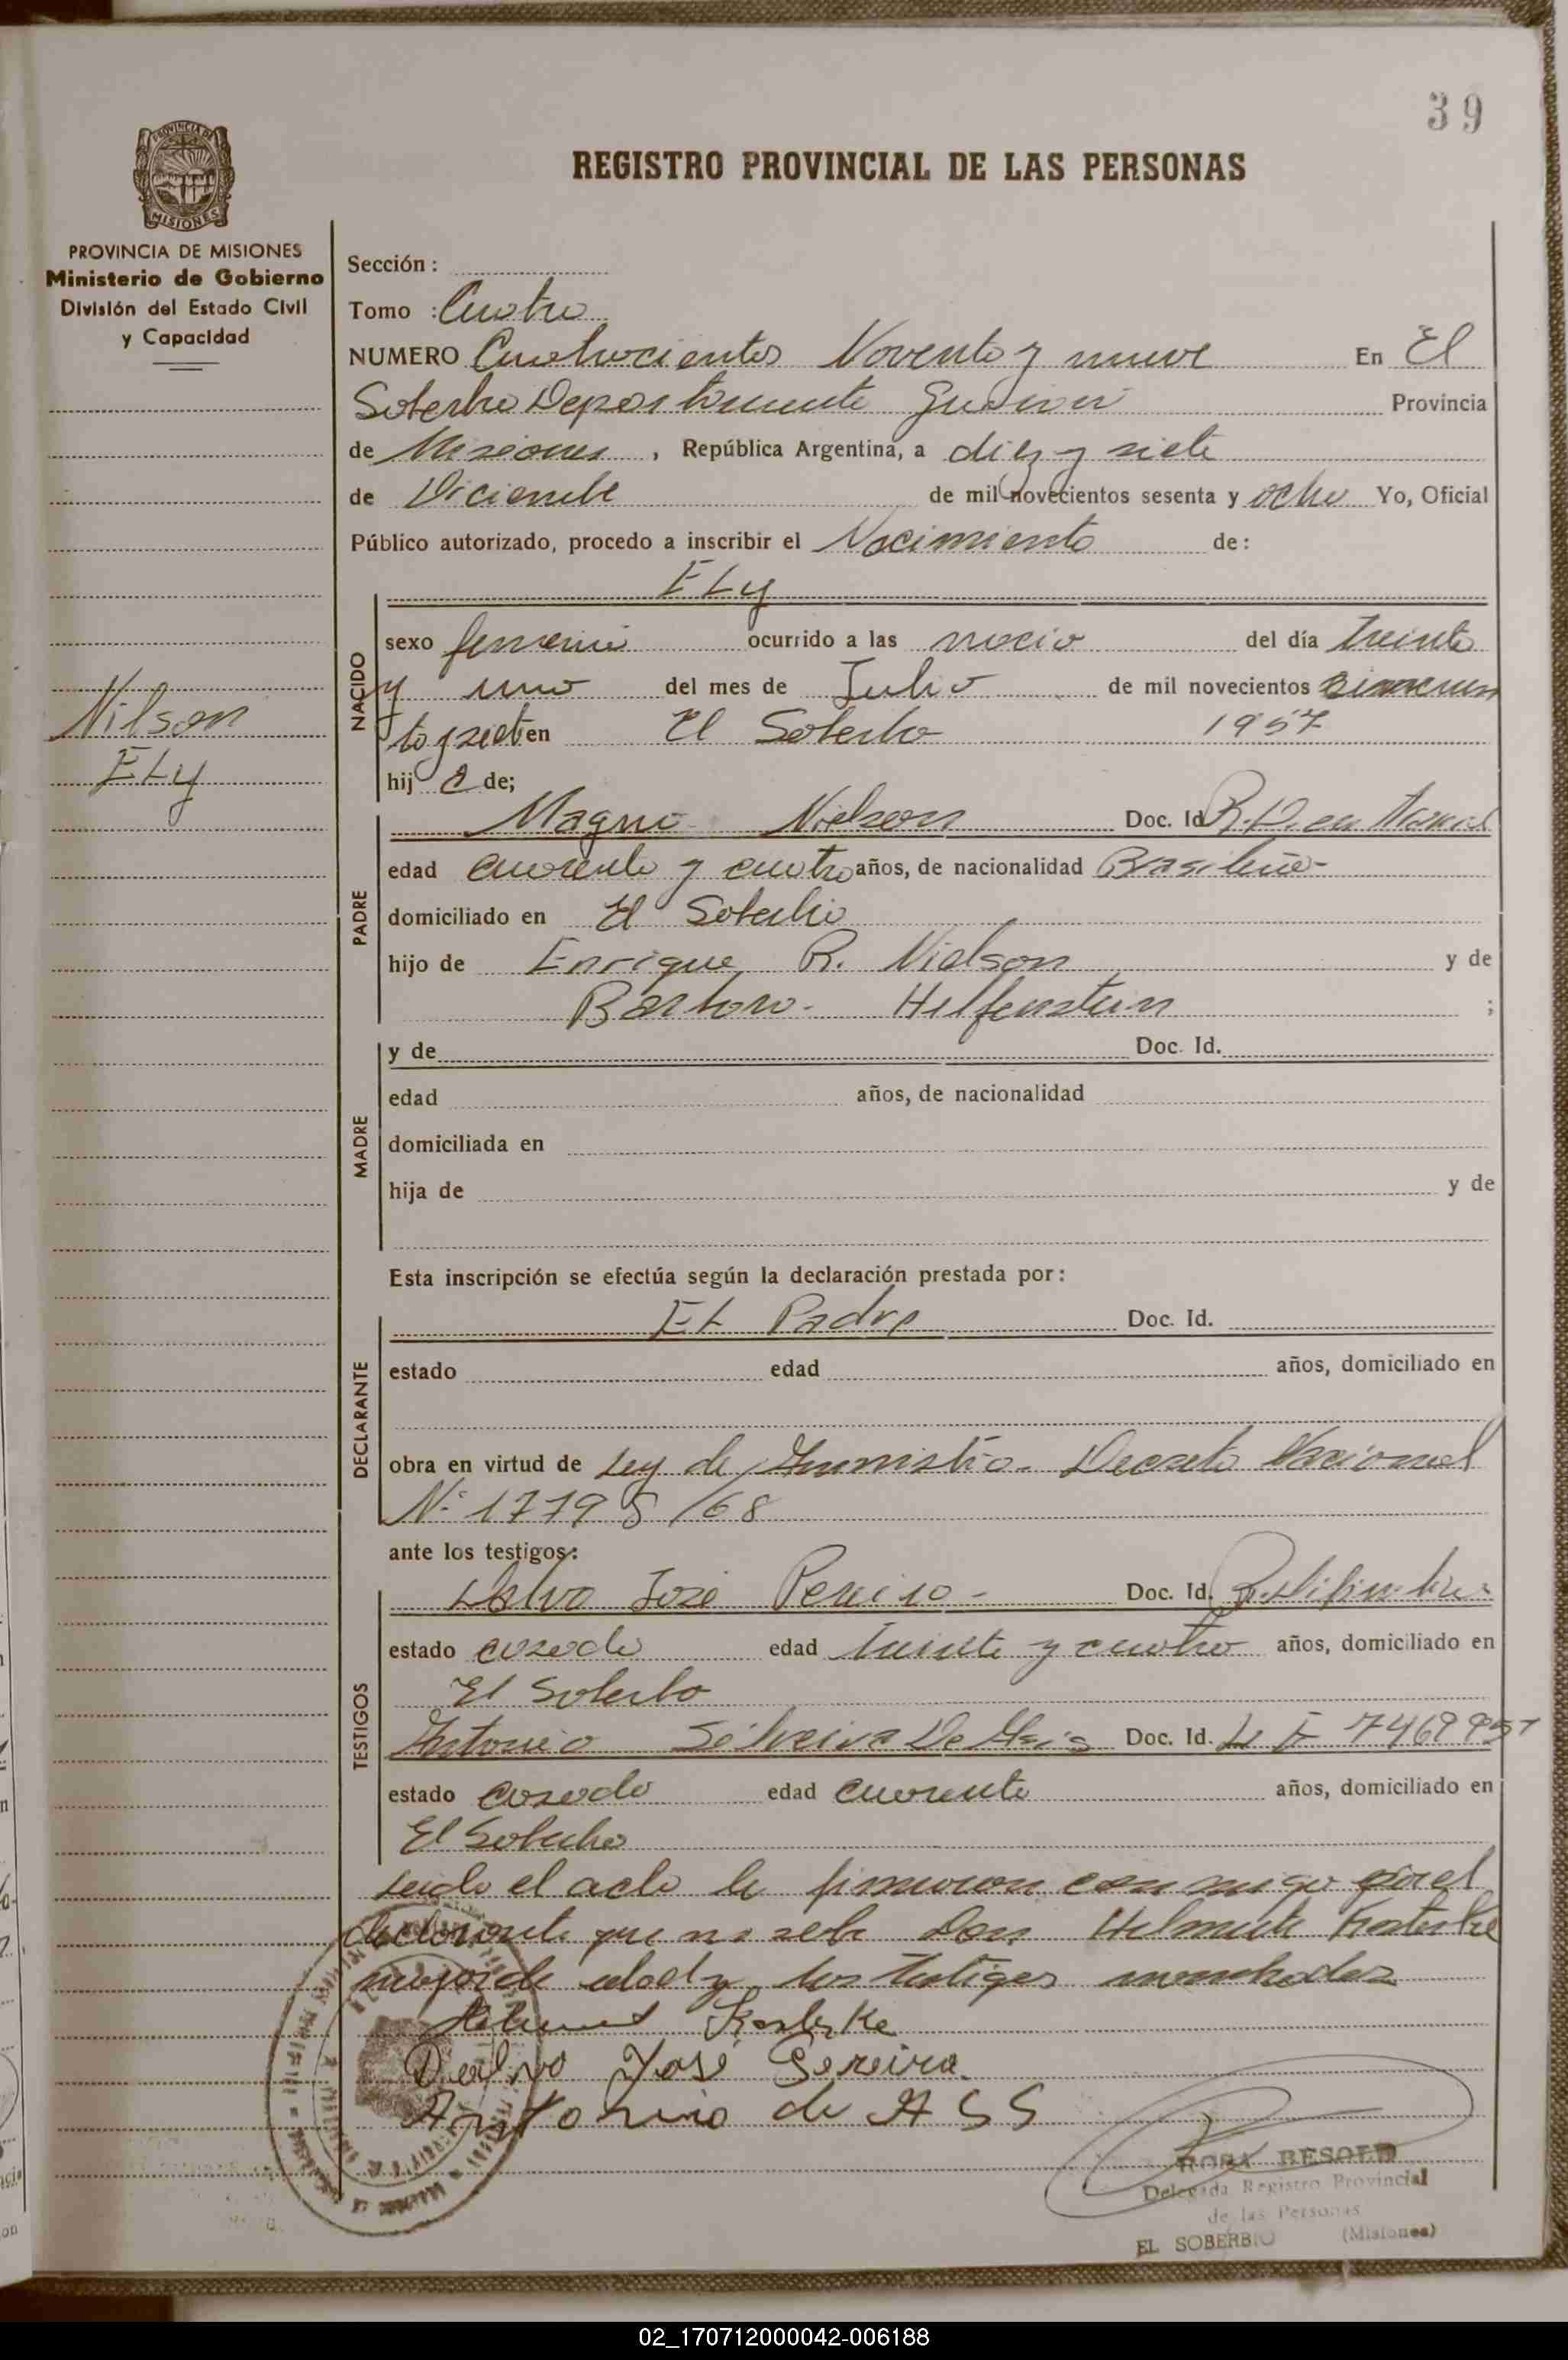 39
REGISTRO PROVINCIAL DE LAS PERSONAS
PROVINCIA DE MISIONES
Ministerio de Gobierno
División del Estado Civil
y Capacidad
Nilson
ELy
Sección :
Tomo : Cuatro
NUMERO Cuatrocientos Noventa y nueve En El
Soberbio Departamento Guaraní Provincia
de Misiones , República Argentina, a diez y siete
de Diciembre de mil novecientos sesenta y ocho Yo, Oficial
Público autorizado, procedo a inscribir el Nacimiento de :
ELy
NACIDO
sexo femenino ocurrido a las del día treinta
y uno del mes de Julio de mil novecientos cincuen
ta y siete en El Soberbio 1957
hij a de;
PADRE
Magno Nielson Doc. Id.
edad cuarenta y cuatro años, de nacionalidad Brasileño-
domiciliado en El Soberbio
hijo de Enrique R. Nielson y de
Barbara- Helfenstein ;
MADRE
y de Doc. Id.
edad años, de nacionalidad
domiciliada en
hija de y de
Esta inscripción se efectúa según la declaración prestada por :
DECLARANTE
EL Padre Doc. Id.
estado edad años, domiciliado en
obra en virtud de Ley de Amnistia- Decreto Nacional
N° 17795/68
ante los testigos :
TESTIGOS
Dalvo José Pereira - Doc. Id.
estado casado edad treinta y cuatro años, domiciliado en
El Soberbio
Antonio Silveira De Doc. Id. L E
estado casado edad cuarenta años, domiciliado en
El Soberbio
Leida el acta la firmaron conmigo por el
declarante que no sabe Don Helmuth
mayor de edad y los testigos mencionados
Koslerke
Dalvo José Pereira
Antonino de ASS
ROSA BESOLD
Delegada Registro Provincial
de las Personas
EL SOBERBIO (Misiones)
02_170712000042-006188